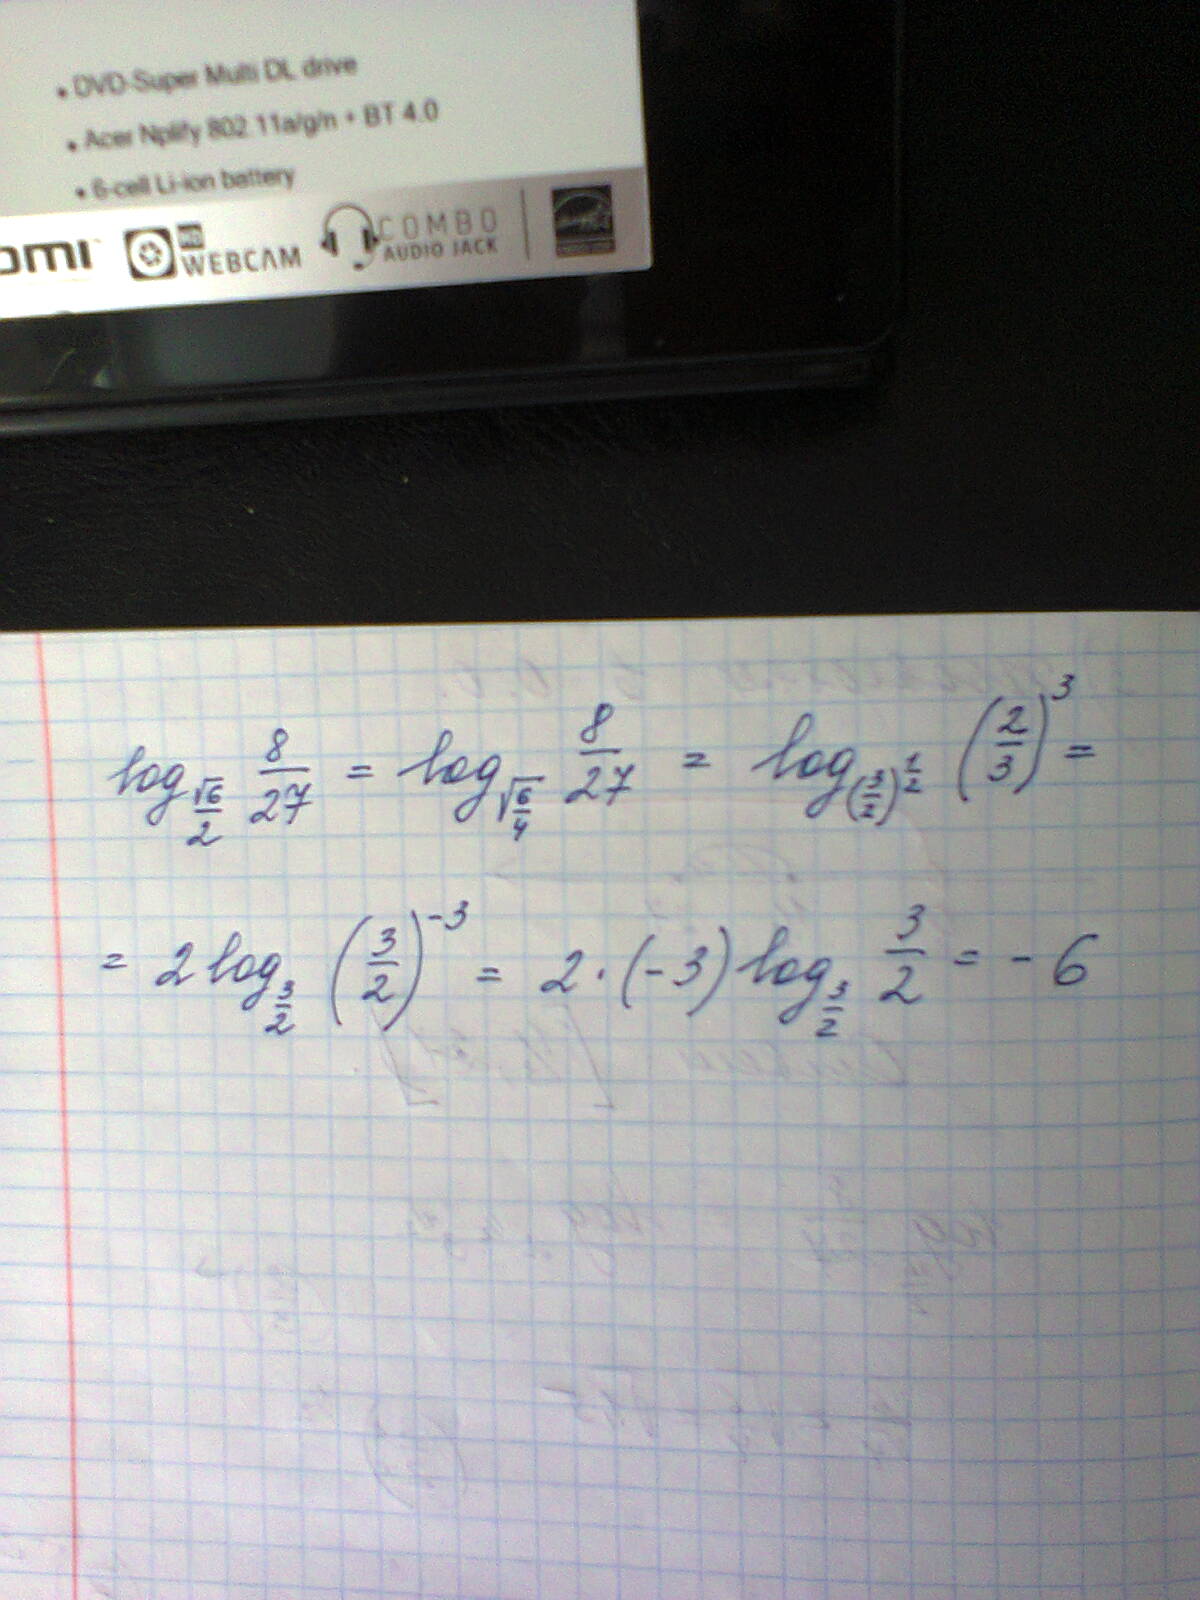 • DVD-Super Multi DL drive
• Acer Nplify 802.11a/g/n + BT 4.0
• 6-cell Li-ion battery
HD WEBCAM
COMBO AUDIO JACK
log_{√6/2} 8/27 = log_{√(6/4)} 8/27 = log_{(3/2)^{1/2}} (2/3)^3 =
= 2 log_{3/2} (3/2)^{-3} = 2·(-3) log_{3/2} 3/2 = -6